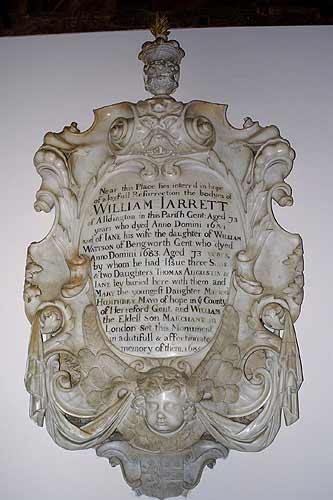 Near this Place lies interr'd in hope
of a joyfull Resurrection the bodyes of
WILLIAM JARRETT
of Alldington in this Parish Gent: Aged 73
years who dyed Anno Domini 1681
and of JANE his wife the daughter of WILLIAM
WATSON of Bengworth Gent who dyed
Anno Domini 1683 Aged 73
by whom he had Issue three
& two Daughters THOMAS AUGUSTIN &
JANE ley buried here with them and
MARY the youngest Daughter Married
HUMPHREY MAYO of hope in ye County
of Herreford Gent. and WILLIAM
the Eldest Son MARCHANT in
London Set this Monument
in a dutifull & affectionate
memory of them